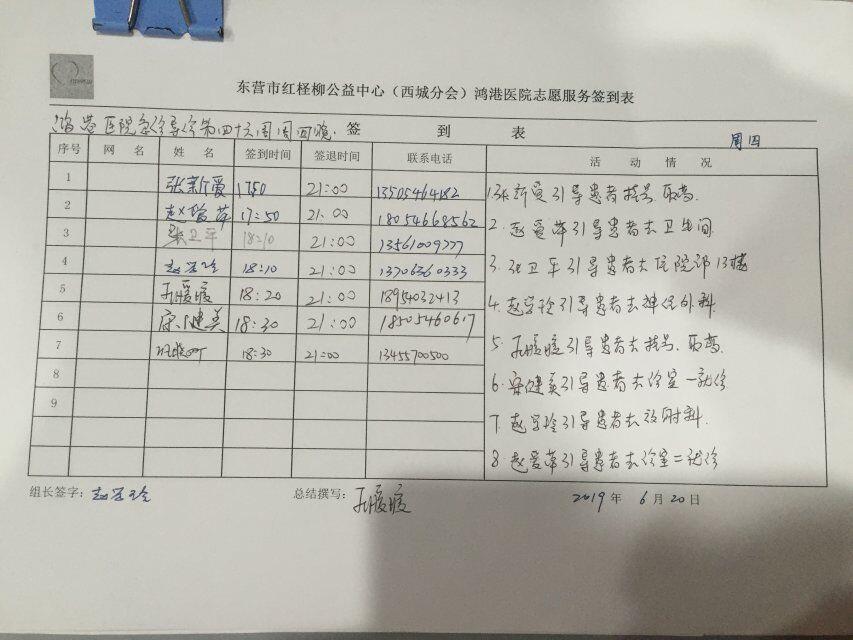 东营市红柽柳公益中心（西城分会）鸿港医院志愿服务签到表
鸿港医院急诊导诊第四十六周周四晚. 签 到 表 周四
序号 网名 姓名 签到时间 签退时间 联系电话 活动情况
1 张新爱 1750 21:00 13505464182
2 17:50 21:00 18054668562
3 张卫平 18:10 21:00 13561009777
4 18:10 21:00 13706360333
5 孔暖暖 18:20 21:00 18954032413
6 宋健美 18:30 21:00 18505460617
7 18:30 21:00 13455700500
8
9
1.张新爱引导患者挂号、取药.
2. 赵爱萍引导患者去卫生间.
3. 张卫平引导患者去住院部13楼
4. 引导患者去神经外科.
5. 孔暖暖引导患者去挂号、取药.
6. 宋健美引导患者去诊室一就诊
7. 引导患者去放射科.
8. 赵爱萍引导患者去诊室二就诊
组长签字： 总结撰写：孔暖暖 2019年 6月20日